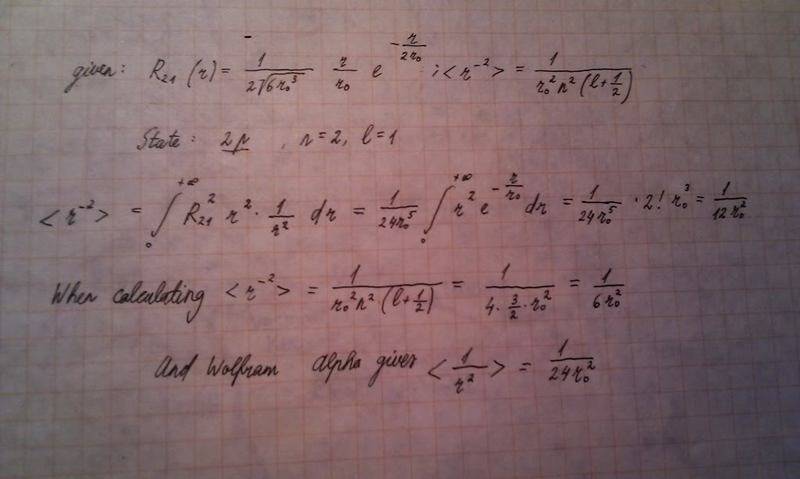 given: R₂₁ (r) = 1/(2√(6r₀³)) r/r₀ e^(-r/(2r₀)) ; <r⁻²> = 1/(r₀² n² (l + 1/2))
State: 2p , n = 2, l = 1
<r⁻²> = ∫₀^(+∞) R₂₁² r² · 1/r² dr = 1/(24r₀⁵) ∫₀^(+∞) r² e^(-r/r₀) dr = 1/(24r₀⁵) · 2! r₀³ = 1/(12r₀²)
When calculating <r⁻²> = 1/(r₀² n² · (l + 1/2)) = 1/(4 · 3/2 · r₀²) = 1/(6r₀²)
And Wolfram Alpha gives <1/r²> = 1/(24r₀²)